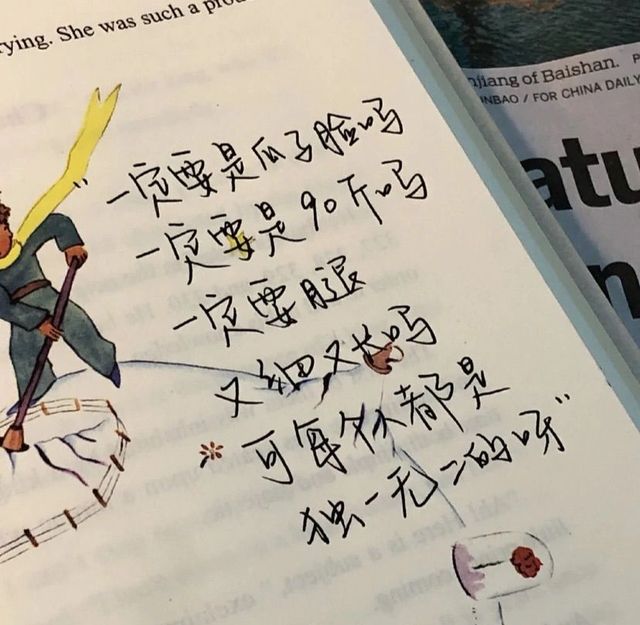 rying. She was such a pro
njiang of Baishan. P
INBAO / FOR CHINA DAILY
atu
n
"一定要是瓜子脸吗
一定要是90斤吗
一定要腿
又细又长吗
*可每个都是
独一无二的呀"